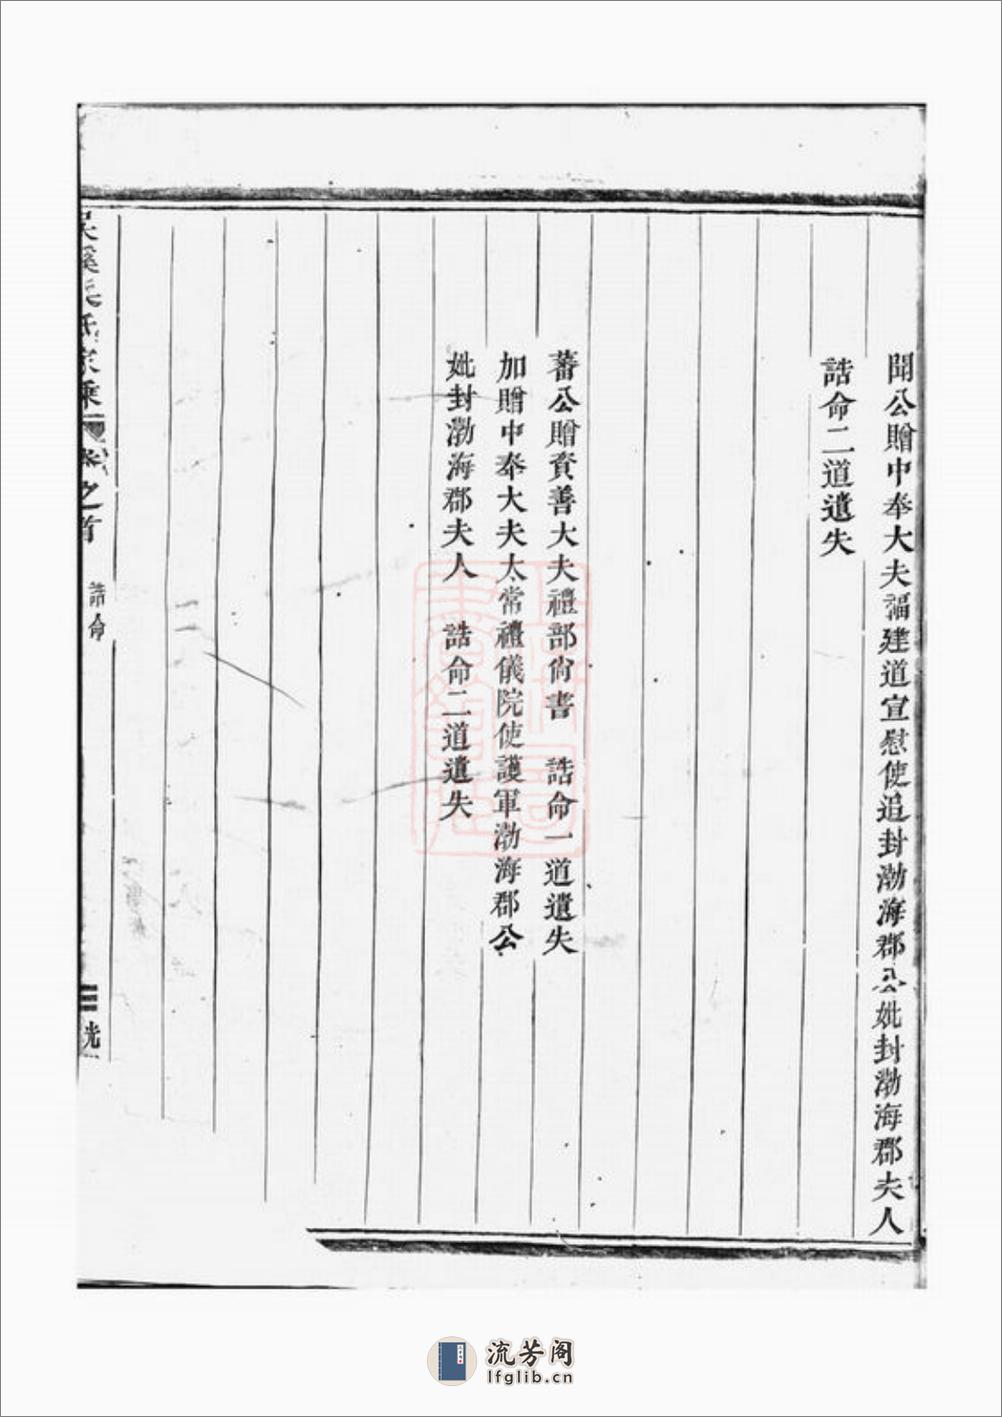 聞公贈中奉大夫福建道宣慰使追封渤海郡公妣封渤海郡夫人
誥命二道遺失
蕃公贈資善大夫禮部尙書 誥命一道遺失
加贈中奉大夫太常禮儀院使護軍渤海郡公
妣封渤海郡夫人 誥命二道遺失
溪吳氏家乘 卷之首 誥命 三 光
流芳阁
lfglib.cn